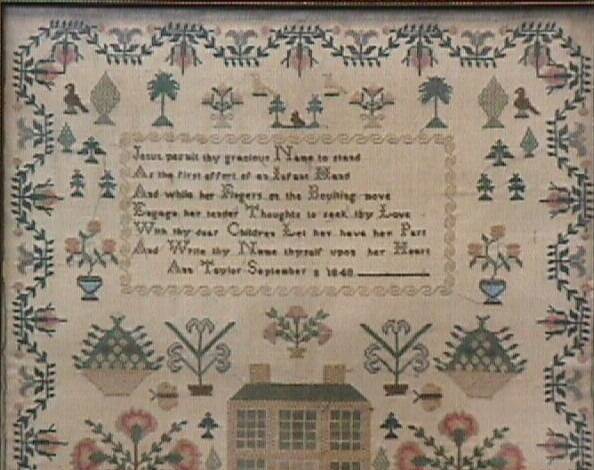 Jesus permit thy gracious Name to stand
As the first effort of an Infant Hand
And while her Fingers on the
move
Engage her tender Thoughts to seek thy Love
With thy dear Children Let her have her Part
And Write thy Name thyself upon her Heart
Ann Taylor September 1848